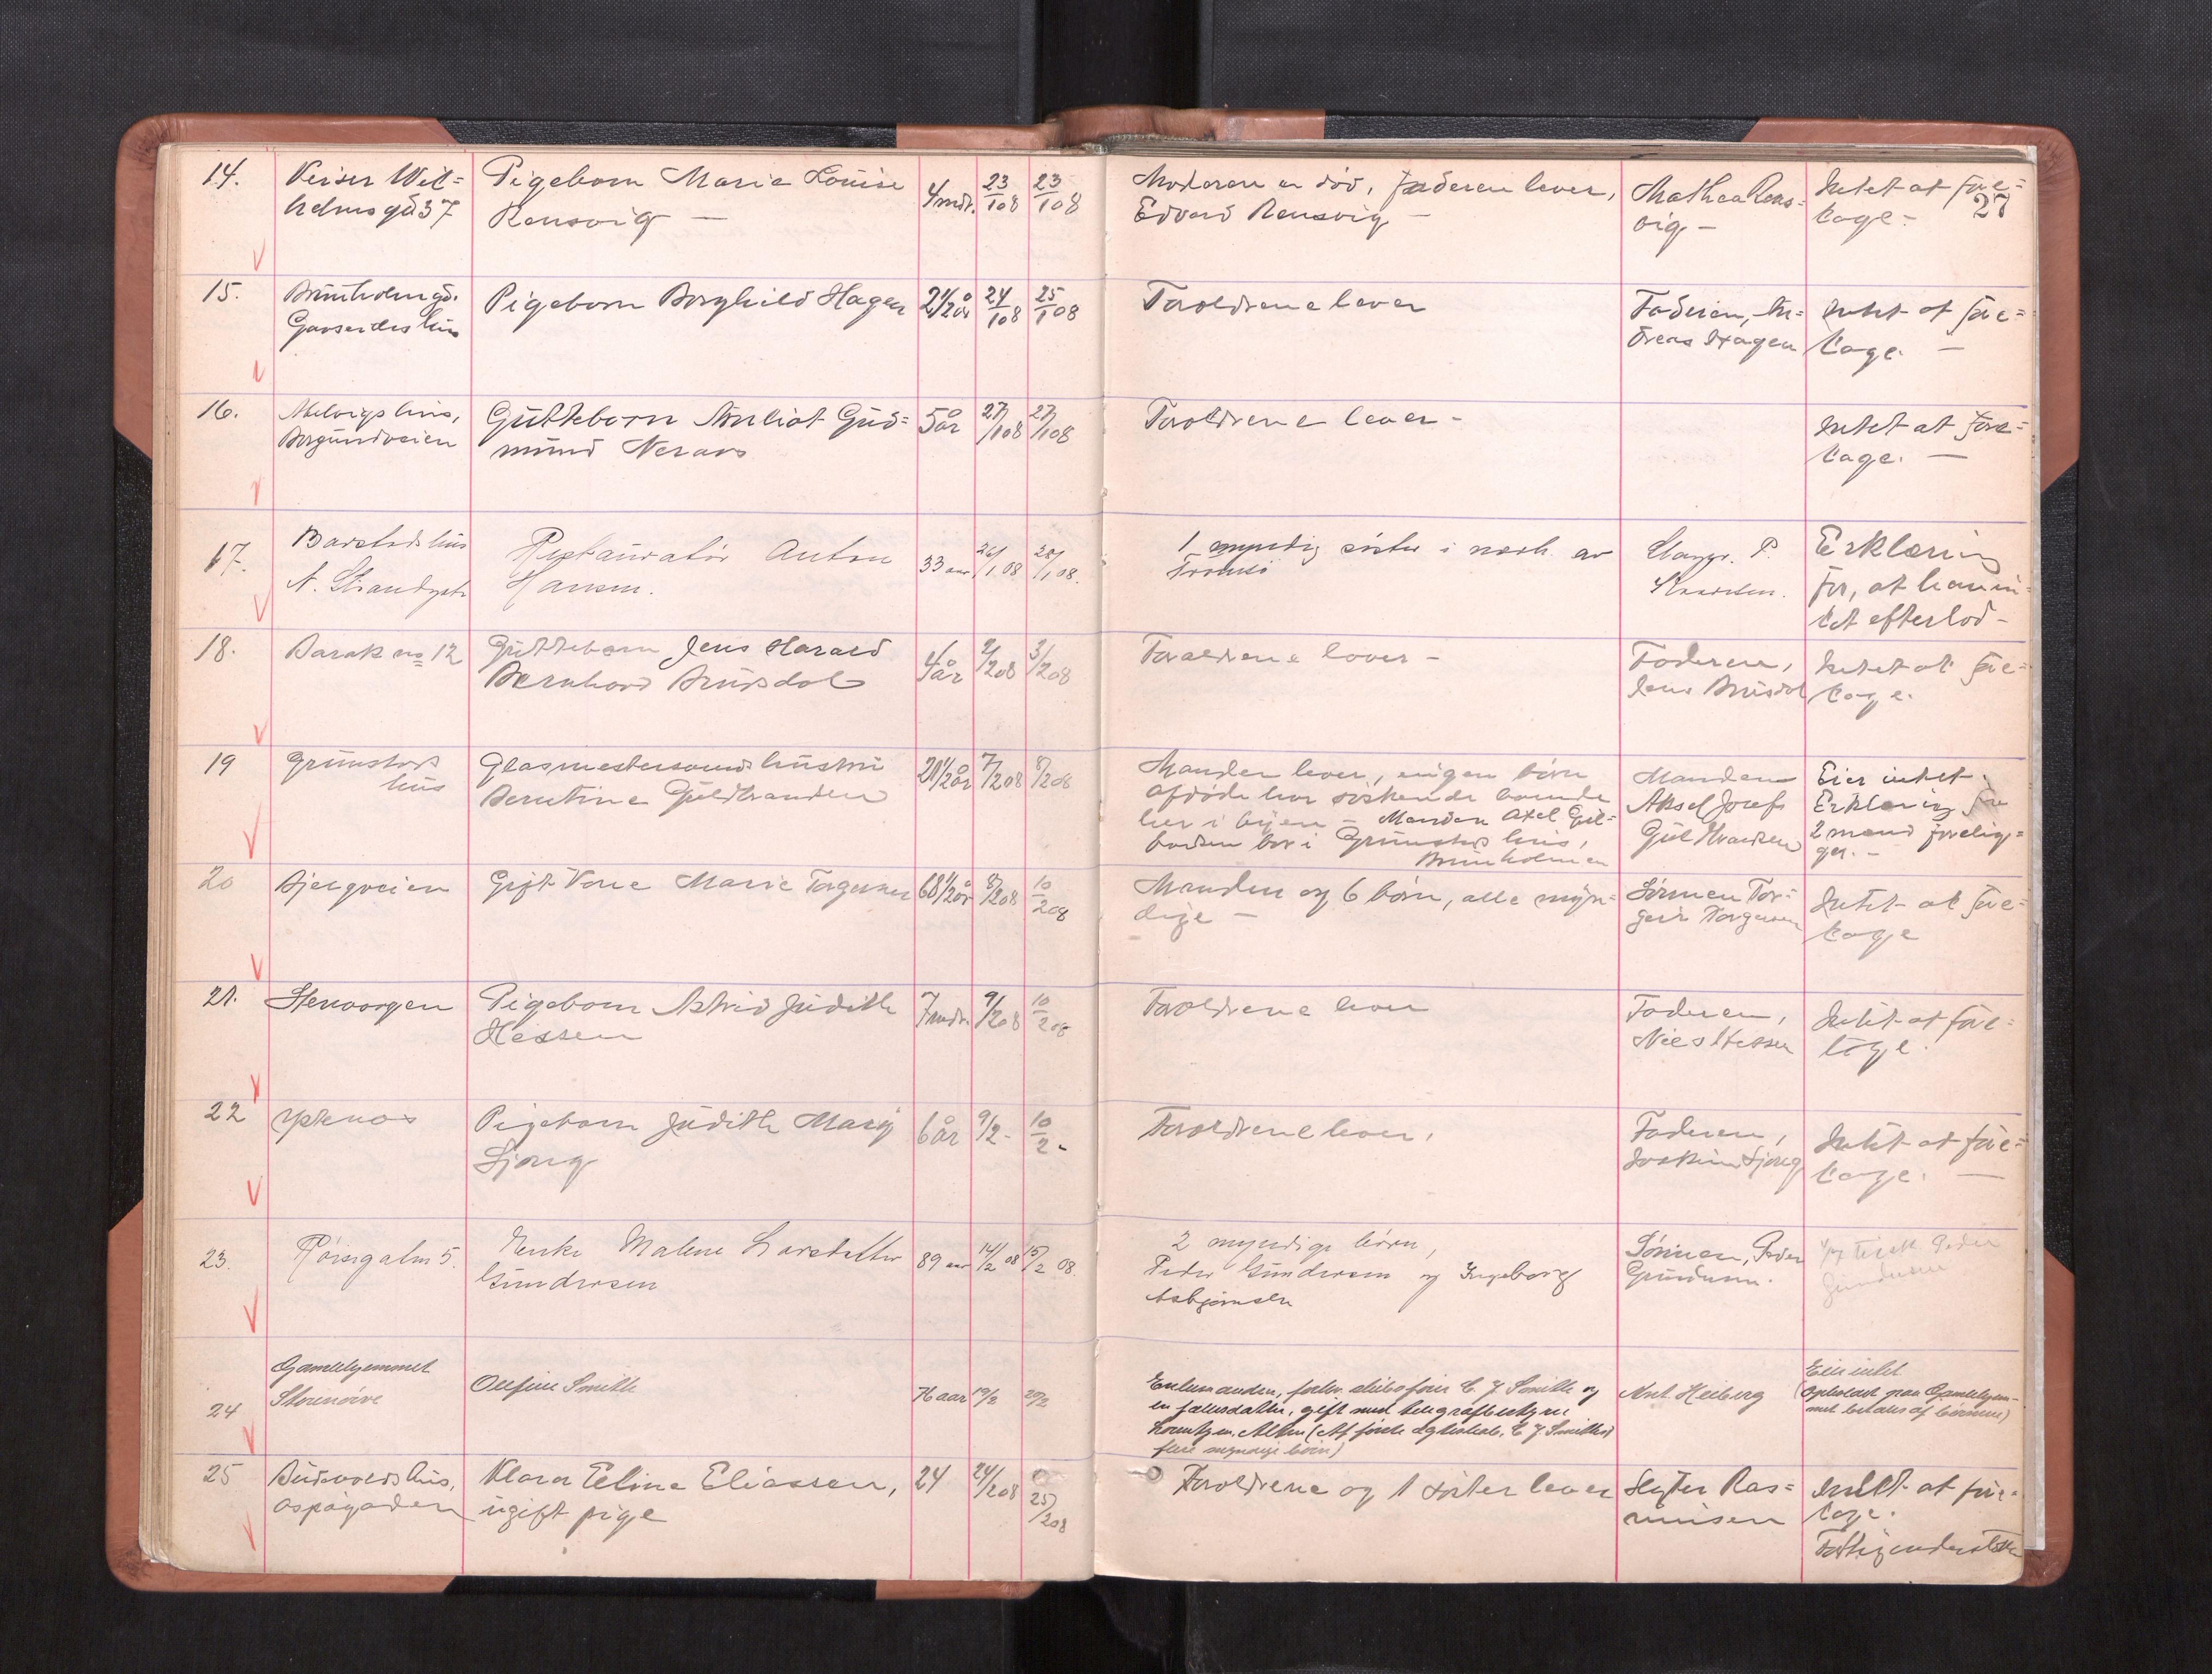 27
14.
Keiser Wil=
helmsgd 37
Pigebarn Marie Louise
Rensvig —
4 mdr.
23/1 08
23/1 08
Moderen er död, faderen lever,
Edvard Rensvig —
Mathea Rens=
vig —
Intet at fore=
tage. —
15.
Brunholmgd.
Pigebarn Borghild Hagen
2 1/2 år
24/1 08
25/1 08
Foreldrene lever
Faderen, An=
dreas Hagen
Intet at fore=
tage. —
16.
hus,
Borgundveien
Guttebarn Arnliot Gud=
mund
5 år
27/1 08
27/1 08
Foreldrene lever —
Intet at fore=
tage. —
17.
Barstads hus
N. Strandgt
Restauratör Anton
Hansen.
33 aar
28/1 08.
1 myndig söster i nærh. av
Tromsö
P.
Knudsen.
Erklæring
for, at han in=
tet efterlod —
18.
Barak no 12
Guttebarn Jens Harald
Bernhard Brusdal
4 år
2/2 08
3/2 08
Foreldrene lever —
Faderen,
Jens Brusdal
Intet at fore=
tage.
19
Grimstads
hus
Glasmestersvends hustru
Berntine Guldbrandsen
21 1/2 år
7/2 08
8/2 08
Manden lever, ingen börn
Afdöde har söskende boende
her i byen — Manden Axel Gul=
bandsen bor i Grimstads hus,
Brunholmen
Manden
Aksel Josef
Guldbrandsen
Eier intet.
Erklæring fra
2 mænd forelig=
ger. —
20
Bjergveien
Gift kone Marie Torgersen
68 1/2 år
8/2 08
10/2 08
Manden og 6 börn, alle myn=
dige —
Sönnen Tor=
geir Torgersen
Intet at fore=
tage
21.
Stenvaagen
Pigebarn Astrid Judith
Hessen
7 mdr.
9/2 08
10/2 08
Foreldrene lever
Faderen,
Nils Hessen
Intet at fore=
tage.
22
Ysteneset
Pigebarn Judith Marij
Sjong
6 år
9/2 -
10/2 -
Foreldrene lever.
Faderen,
Joakim Sjong
Intet at fore=
tage. —
23.
Röisgata 5.
Enke Malene Larsdatter
Gundersen
89 aar
14/2 08
15/2 08
2 myndige börn,
Peder Gundersen og Ingeborg
Asbjörnsen
Sönnen, Peder
Gundersen.
Peder
Gundersen
24
Gamlehjemmet
Storenöive
Olefine Smith
76 aar
19/2
20/2
Enkemanden, forhv. skibsförer C. J. Smith og
en fællesdatter, gift med telegrafbestyrer
Lorentzen, Alten (Af förste ægteskab, C J Smiths
flere myndige börn)
Ant. Heiberg
Eier intet
(Opholdet paa Gamlehjem=
met betales af börnene)
25
Budevolds hus,
Aspögaden
Klara Eline Eliassen,
ugift pige
24
24/2 08
25/2 08
Foreldrene og 1 söster lever
Slagter Ras=
mussen
Intet at fore=
tage.
Fattigunderstöttet